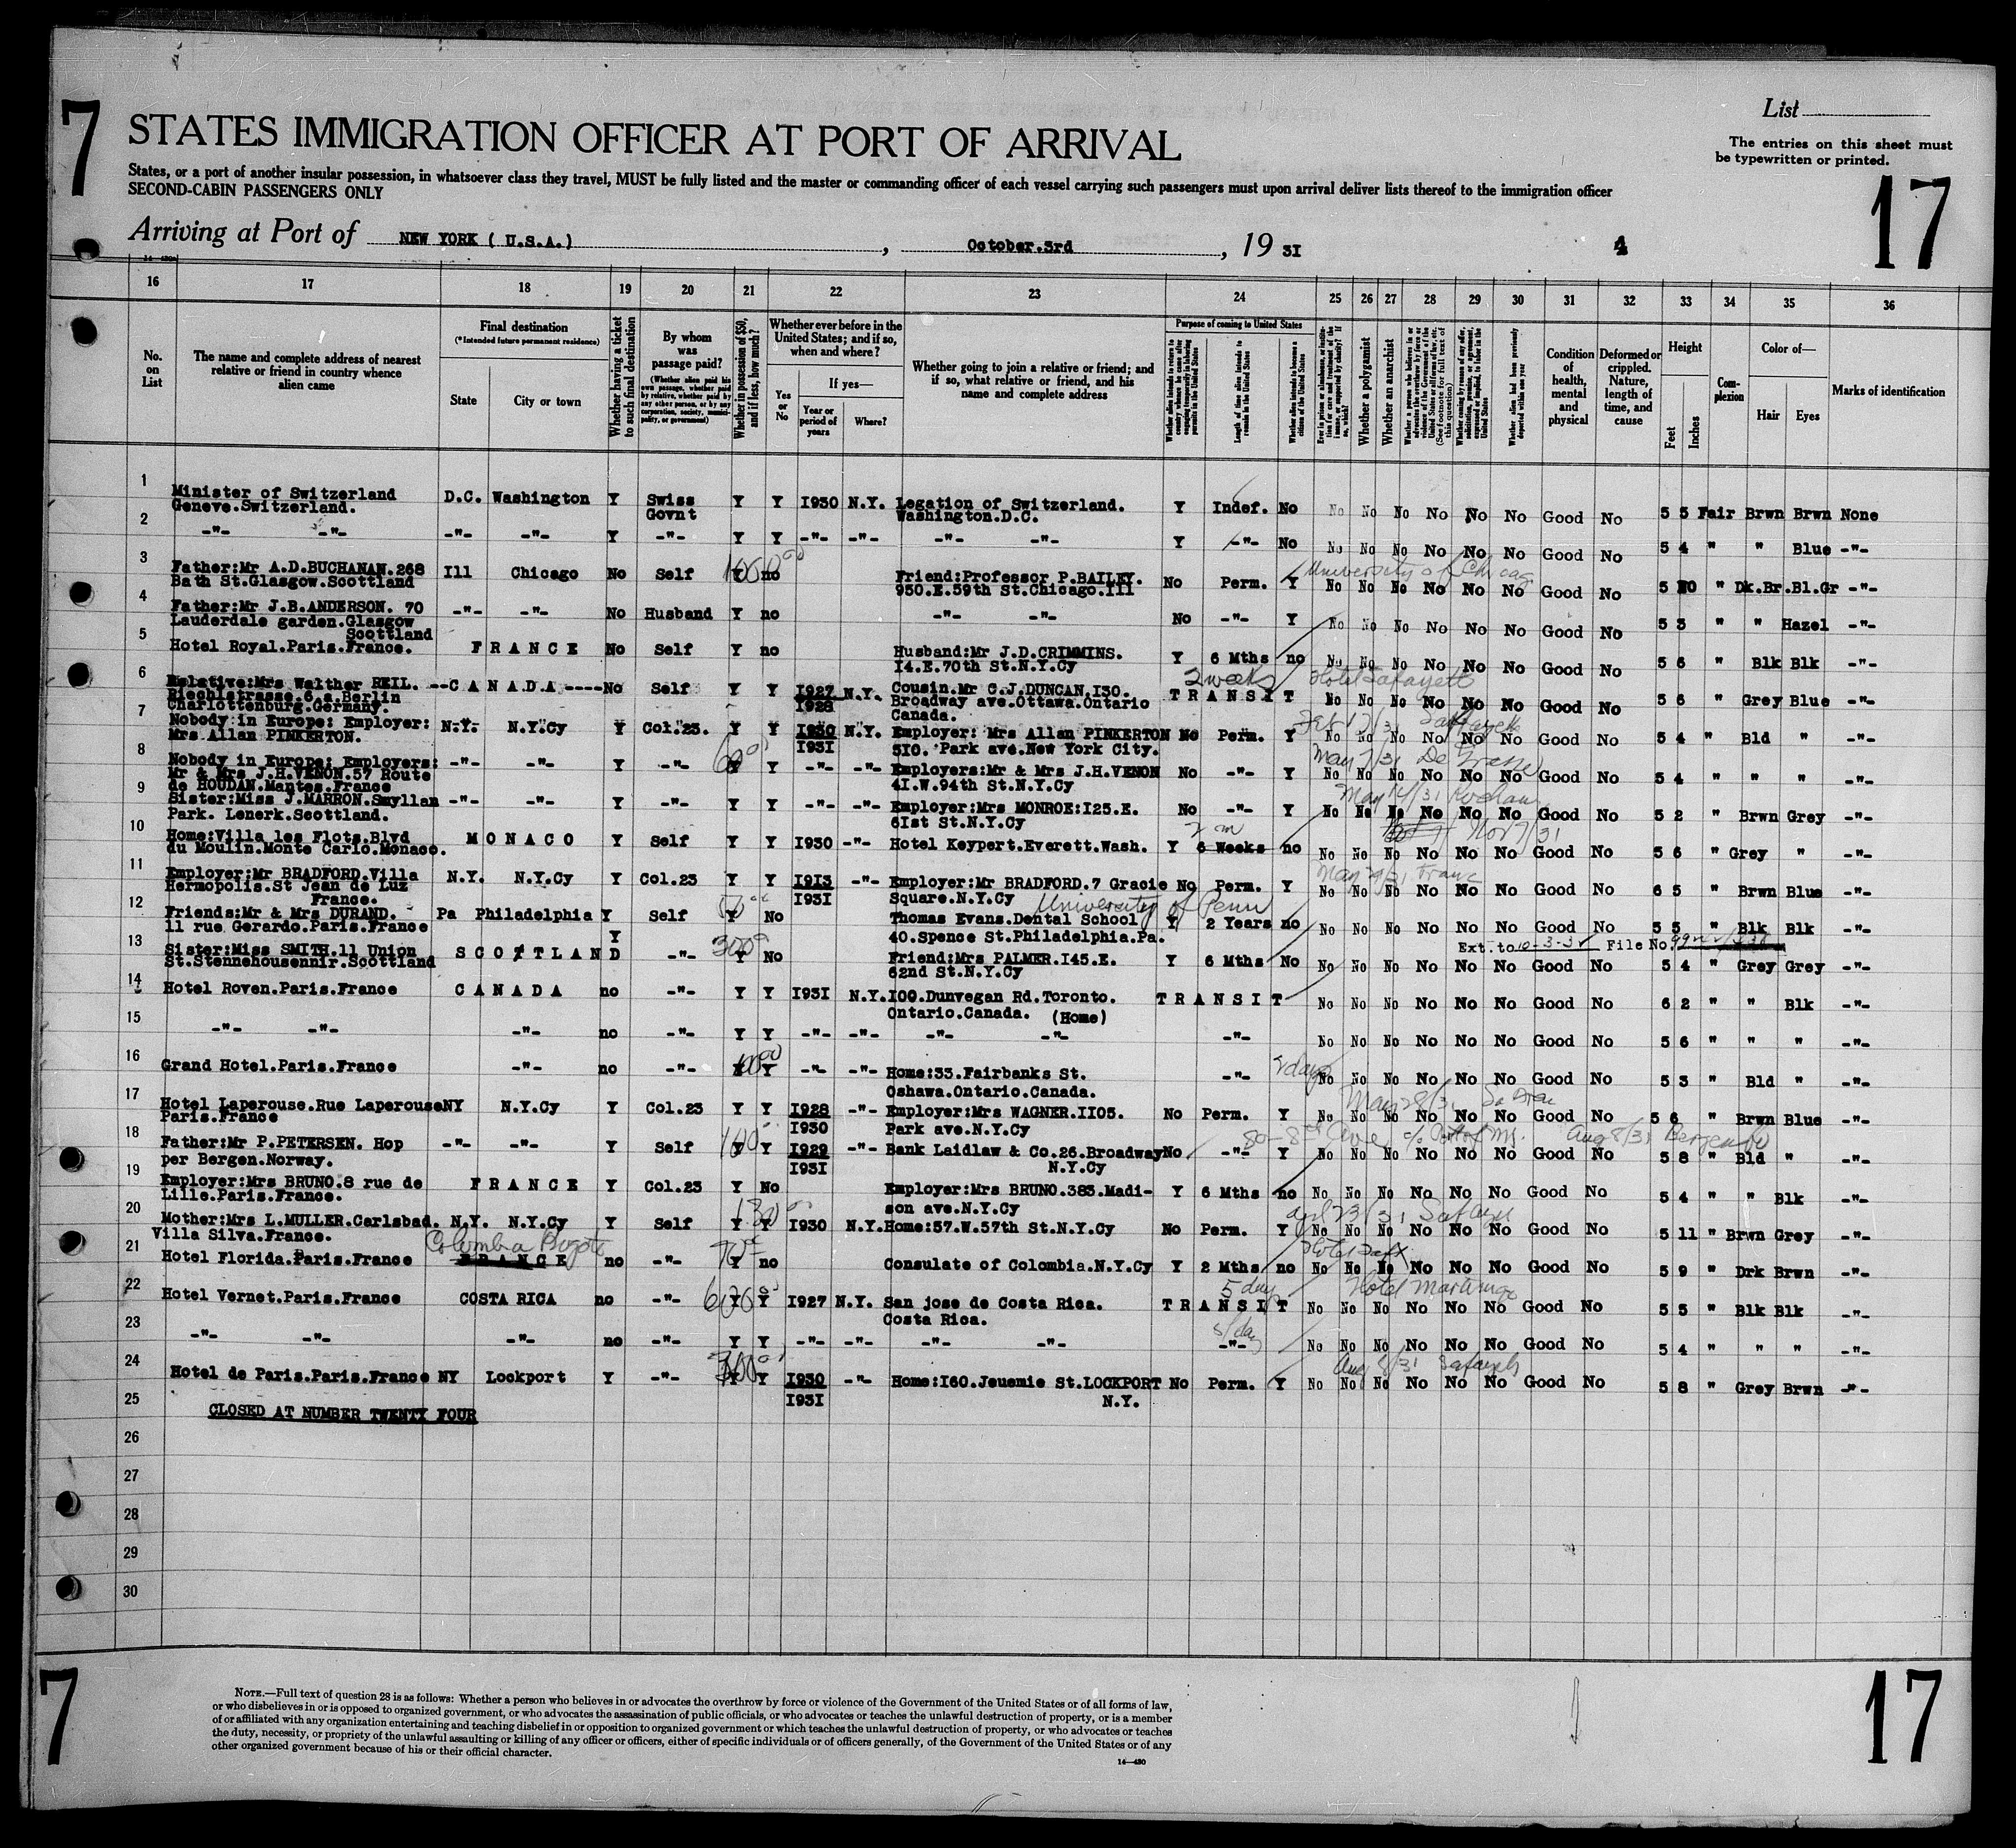 7
STATES IMMIGRATION OFFICER AT PORT OF ARRIVAL
List
The entries on this sheet must
be typewritten or printed.
States, or a port of another insular possession, in whatsoever class they travel, MUST be fully listed and the master or commanding officer of each vessel carrying such passengers must upon arrival deliver lists thereof to the immigration officer
SECOND-CABIN PASSENGERS ONLY
17
Arriving at Port of NEW YORK ( U.S.A.) , October.3rd , 19 31
4
16 17 18 19 20 21 22 23 24 25 26 27 28 29 30 31 32 33 34 35 36
No. on List
The name and complete address of nearest relative or friend in country whence alien came
Final destination
(*Intended future permanent residence)
State
City or town
Whether having a ticket to such final destination
By whom was passage paid?
(Whether alien paid his own passage, whether paid by relative, whether paid by any other person, or by any corporation, society, municipality, or government)
Whether in possession of $50, and if less, how much?
Whether ever before in the United States; and if so, when and where?
Yes or No
If yes—
Year or period of years
Where?
Whether going to join a relative or friend; and if so, what relative or friend, and his name and complete address
Purpose of coming to United States
Length of time alien intends to remain in the United States
Whether alien intends to become a citizen of the United States
Whether a polygamist
Whether an anarchist
Condition of health, mental and physical
Deformed or crippled. Nature, length of time, and cause
Height
Feet
Inches
Complexion
Color of—
Hair
Eyes
Marks of identification
1 Minister of Switzerland D.C. Washington Y Swiss Y Y 1930 N.Y. Legation of Switzerland. Y Indef. No No No No No No No Good No 5 5 Fair Brwn Brwn None
Geneve.Switzerland. Govnt Washington.D.C.
2 -"- -"- -"- -"- Y -"- Y Y -"- -"- -"- -"- Y -"- No No No No No No No Good No 5 4 " " Blue -"-
3 Father:Mr A.D.BUCHANAN.268 Ill Chicago No Self Y no Friend:Professor P.BAILEY. No Perm. Y No No No No No No Good No 5 10 " Dk.Br.Bl.Gr -"-
Bath St.Glasgow.Scottland 950.E.59th St.Chicago.Ill University of Chicag
4 Father:Mr J.B.ANDERSON. 70 -"- -"- No Husband Y no -"- -"- No -"- Y No No No No No No Good No 5 3 " " Hazel -"-
Lauderdale garden.Glasgow
Scottland
5 Hotel Royal.Paris.France. FRANCE No Self Y no Husband:Mr J.D.CRIMMINS. Y 6 Mths no No No No No No No Good No 5 6 " Blk Blk -"-
14.E.70th St.N.Y.Cy
6 Relative:Mrs Walther REIL. --CANADA----No Self Y Y 1927 N.Y. Cousin.Mr C.J.DUNCAN.130. TRANSIT No No No No No No Good No 5 6 " Grey Blue -"-
Riechlstrasse.6.a.Berlin 1928 Broadway ave.Ottawa.Ontario 2 weeks Hotel Lafayette
Charlottenburg.Germany. Canada.
7 Nobody in Europe: Employer: N.Y. N.Y.Cy Y Col.23. Y Y 1930 N.Y. Employer: Mrs Allan PINKERTON No Perm. Y No No No No No No Good No 5 4 " Bld " -"-
Mrs Allan PINKERTON. 1931 510. Park ave.New York City.
8 Nobody in Europe: Employers: -"- -"- Y -"- Y Y -"- -"- Employers:Mr & Mrs J.H.VENON No -"- Y No No No No No No Good No 5 4 " " " -"-
Mr & Mrs J.H.VENON.57 Route 41.W.94th St.N.Y.Cy May 7/31 De Grasse
de HOUDAN.Mantes.France
9 Sister:Miss J.MARRON.Smyllan -"- -"- Y -"- Y Y -"- -"- Employer:Mrs MONROE:125.E. No -"- Y No No No No No No Good No 5 2 " Brwn Grey -"-
Park. Lenerk.Scottland. 61st St.N.Y.Cy May 14/31
10 Home:Villa les Flots.Blvd MONACO Y Self Y Y 1930 -"- Hotel Keypert.Everett.Wash. Y 6 Weeks no No No No No No No Good No 5 6 " Grey " -"-
du Moulin.Monte Carlo.Monaco. 2 m Nov 7/31
11 Employer:Mr BRADFORD.Villa N.Y. N.Y.Cy Y Col.23 Y Y 1913 -"- Employer:Mr BRADFORD.7 Gracie No Perm. Y No No No No No No Good No 6 5 " Brwn Blue -"-
Hermopolis.St Jean de Luz 1931 Square.N.Y.Cy
France.
12 Friends:Mr & Mrs DURAND. Pa Philadelphia Y Self Y No Thomas Evans.Dental School Y 2 Years no No No No No No No Good No 5 5 " Blk Blk -"-
11 rue Gerardo.Paris.France 40.Spence St.Philadelphia.Pa. University of Penn
Ext. to 10-3-32 File No.
13 Sister:Miss SMITH.11 Union SCOTTLAND Y -"- Y No Friend:Mrs PALMER.145.E. Y 6 Mths No No No No No No No Good No 5 4 " Grey Grey -"-
St.Stennehousennir.Scottland 62nd St.N.Y.Cy
14 Hotel Roven.Paris.France CANADA no -"- Y Y 1931 N.Y. 100.Dunvegan Rd.Toronto. TRANSIT No No No No No No Good No 6 2 " " Blk -"-
Ontario.Canada. (Home)
15 -"- -"- -"- no -"- Y Y -"- -"- -"- -"- -"- No No No No No No Good No 5 6 " " " -"-
16 Grand Hotel.Paris.France -"- no -"- Y Y -"- -"- Home:33.Fairbanks St. -"- 2 days No No No No No No Good No 5 3 " Bld " -"-
Oshawa.Ontario.Canada.
17 Hotel Laperouse.Rue Laperouse NY N.Y.Cy Y Col.23 Y Y 1928 -"- Employer:Mrs WAGNER.1105. No Perm. Y No No No No No No Good No 5 6 " Brwn Blue -"-
Paris.France 1930 Park ave.N.Y.Cy
18 Father:Mr P.PETERSEN. Hop -"- -"- Y Self Y Y 1929 -"- Bank Laidlaw & Co.26.Broadway No -"- Y No No No No No No Good No 5 8 " Bld " -"-
per Bergen.Norway. 1931 N.Y.Cy
19 Employer:Mrs BRUNO.8 rue de FRANCE Y Col.23 Y No Employer:Mrs BRUNO.383.Madi- Y 6 Mths no No No No No No No Good No 5 4 " " Blk -"-
Lille.Paris.France. son ave.N.Y.Cy
20 Mother:Mrs L.MULLER.Carlsbad. N.Y. N.Y.Cy Y Self Y Y 1930 N.Y. Home:57.W.57th St.N.Y.Cy No Perm. Y No No No No No No Good No 5 11 " Brwn Grey -"-
Villa Silva.France. Columbia Bogota
21 Hotel Florida.Paris.France FRANCE no -"- Y no Consulate of Colombia.N.Y.Cy Y 2 Mths no No No No No No No Good No 5 9 " Drk Brwn -"-
22 Hotel Vernet.Paris.France COSTA RICA no -"- Y Y 1927 N.Y. San jose de Costa Rica. TRANSIT No No No No No No Good No 5 5 " Blk Blk -"-
Costa Rica. 5 days
23 -"- -"- -"- no -"- Y Y -"- -"- -"- -"- -"- No No No No No No Good No 5 4 " " " -"-
24 Hotel de Paris.Paris.France NY Lockport Y -"- Y Y 1930 -"- Home:160.Jeuemie St.LOCKPORT No Perm. Y No No No No No No Good No 5 8 " Grey Brwn -"-
1931 N.Y.
25 CLOSED AT NUMBER TWENTY FOUR
26
27
28
29
30
7
17
NOTE.—Full text of question 28 is as follows: Whether a person who believes in or advocates the overthrow by force or violence of the Government of the United States or of all forms of law,
or who disbelieves in or is opposed to organized government, or who advocates the assassination of public officials, or who advocates or teaches the unlawful destruction of property, or is a member
of or affiliated with any organization entertaining and teaching disbelief in or opposition to organized government or which teaches the unlawful destruction of property, or who advocates or teaches
the duty, necessity, or propriety of the unlawful assaulting or killing of any officer or officers, either of specific individuals or of officers generally, of the Government of the United States or of any
other organized government because of his or their official character.
14—430